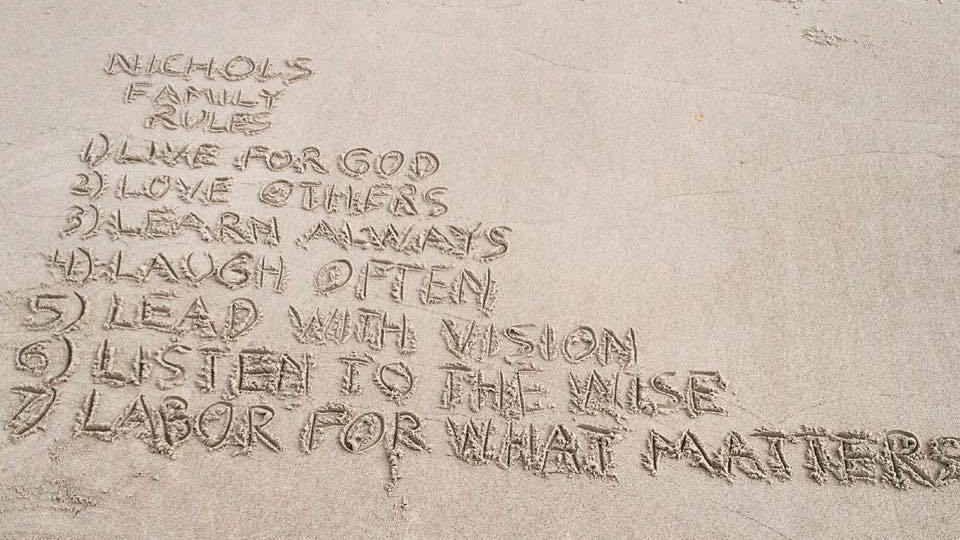 NICHOLS
FAMILY
RULES
1) LIVE FOR GOD
2) LOVE OTHERS
3) LEARN ALWAYS
4) LAUGH OFTEN
5) LEAD WITH VISION
6) LISTEN TO THE WISE
7) LABOR FOR WHAT MATTERS